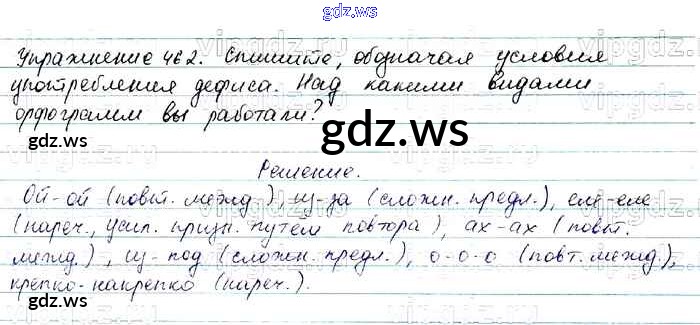 gdz.ws
Упражнение 462. Спишите, обозначая условия
употребления дефиса. Над какими видами
орфограмм вы работали?
gdz.ws
gdz.ws
Решение.
Ой-ой (повт. межд.), из-за (сложн. предл.), еле-еле
(нареч., усил. призн. путем повтора), ах-ах (повт.
межд.), из-под (сложн. предл.), о-о-о (повт. межд.),
крепко-накрепко (нареч.).
gdz.ws
gdz.ws